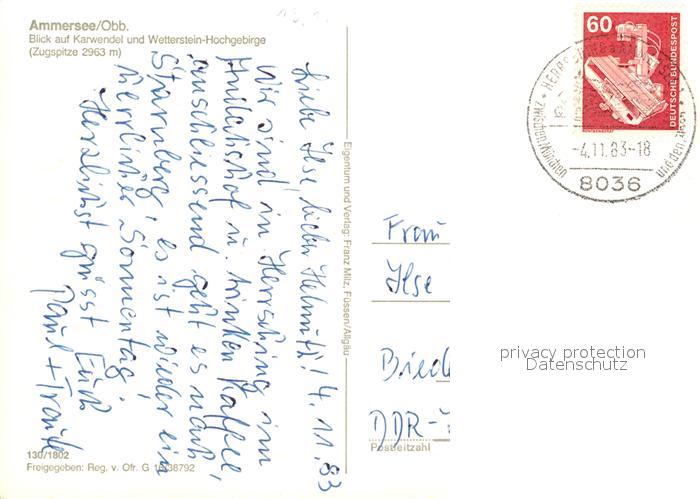 Ammersee/Obb.
Blick auf Karwendel und Wetterstein-Hochgebirge
(Zugspitze 2963 m)
Liebe Ilse, lieber Helmut! 4.11.83
Wir sind in Herrsching im
u. trinken Kaffee,
anschliessend geht es nach
Starnberg, es ist wieder ein
herrlicher Sonnentag.
Herzlichst grüsst Euch
Paul + Traute
Eigentum und Verlag: Franz Milz, Füssen/Allgäu
130/1802
Freigegeben: Reg. v. Ofr. G
60
DEUTSCHE BUNDESPOST
-4.11.83-18
8036
Frau
Ilse
DDR-
Postleitzahl
privacy protection
Datenschutz